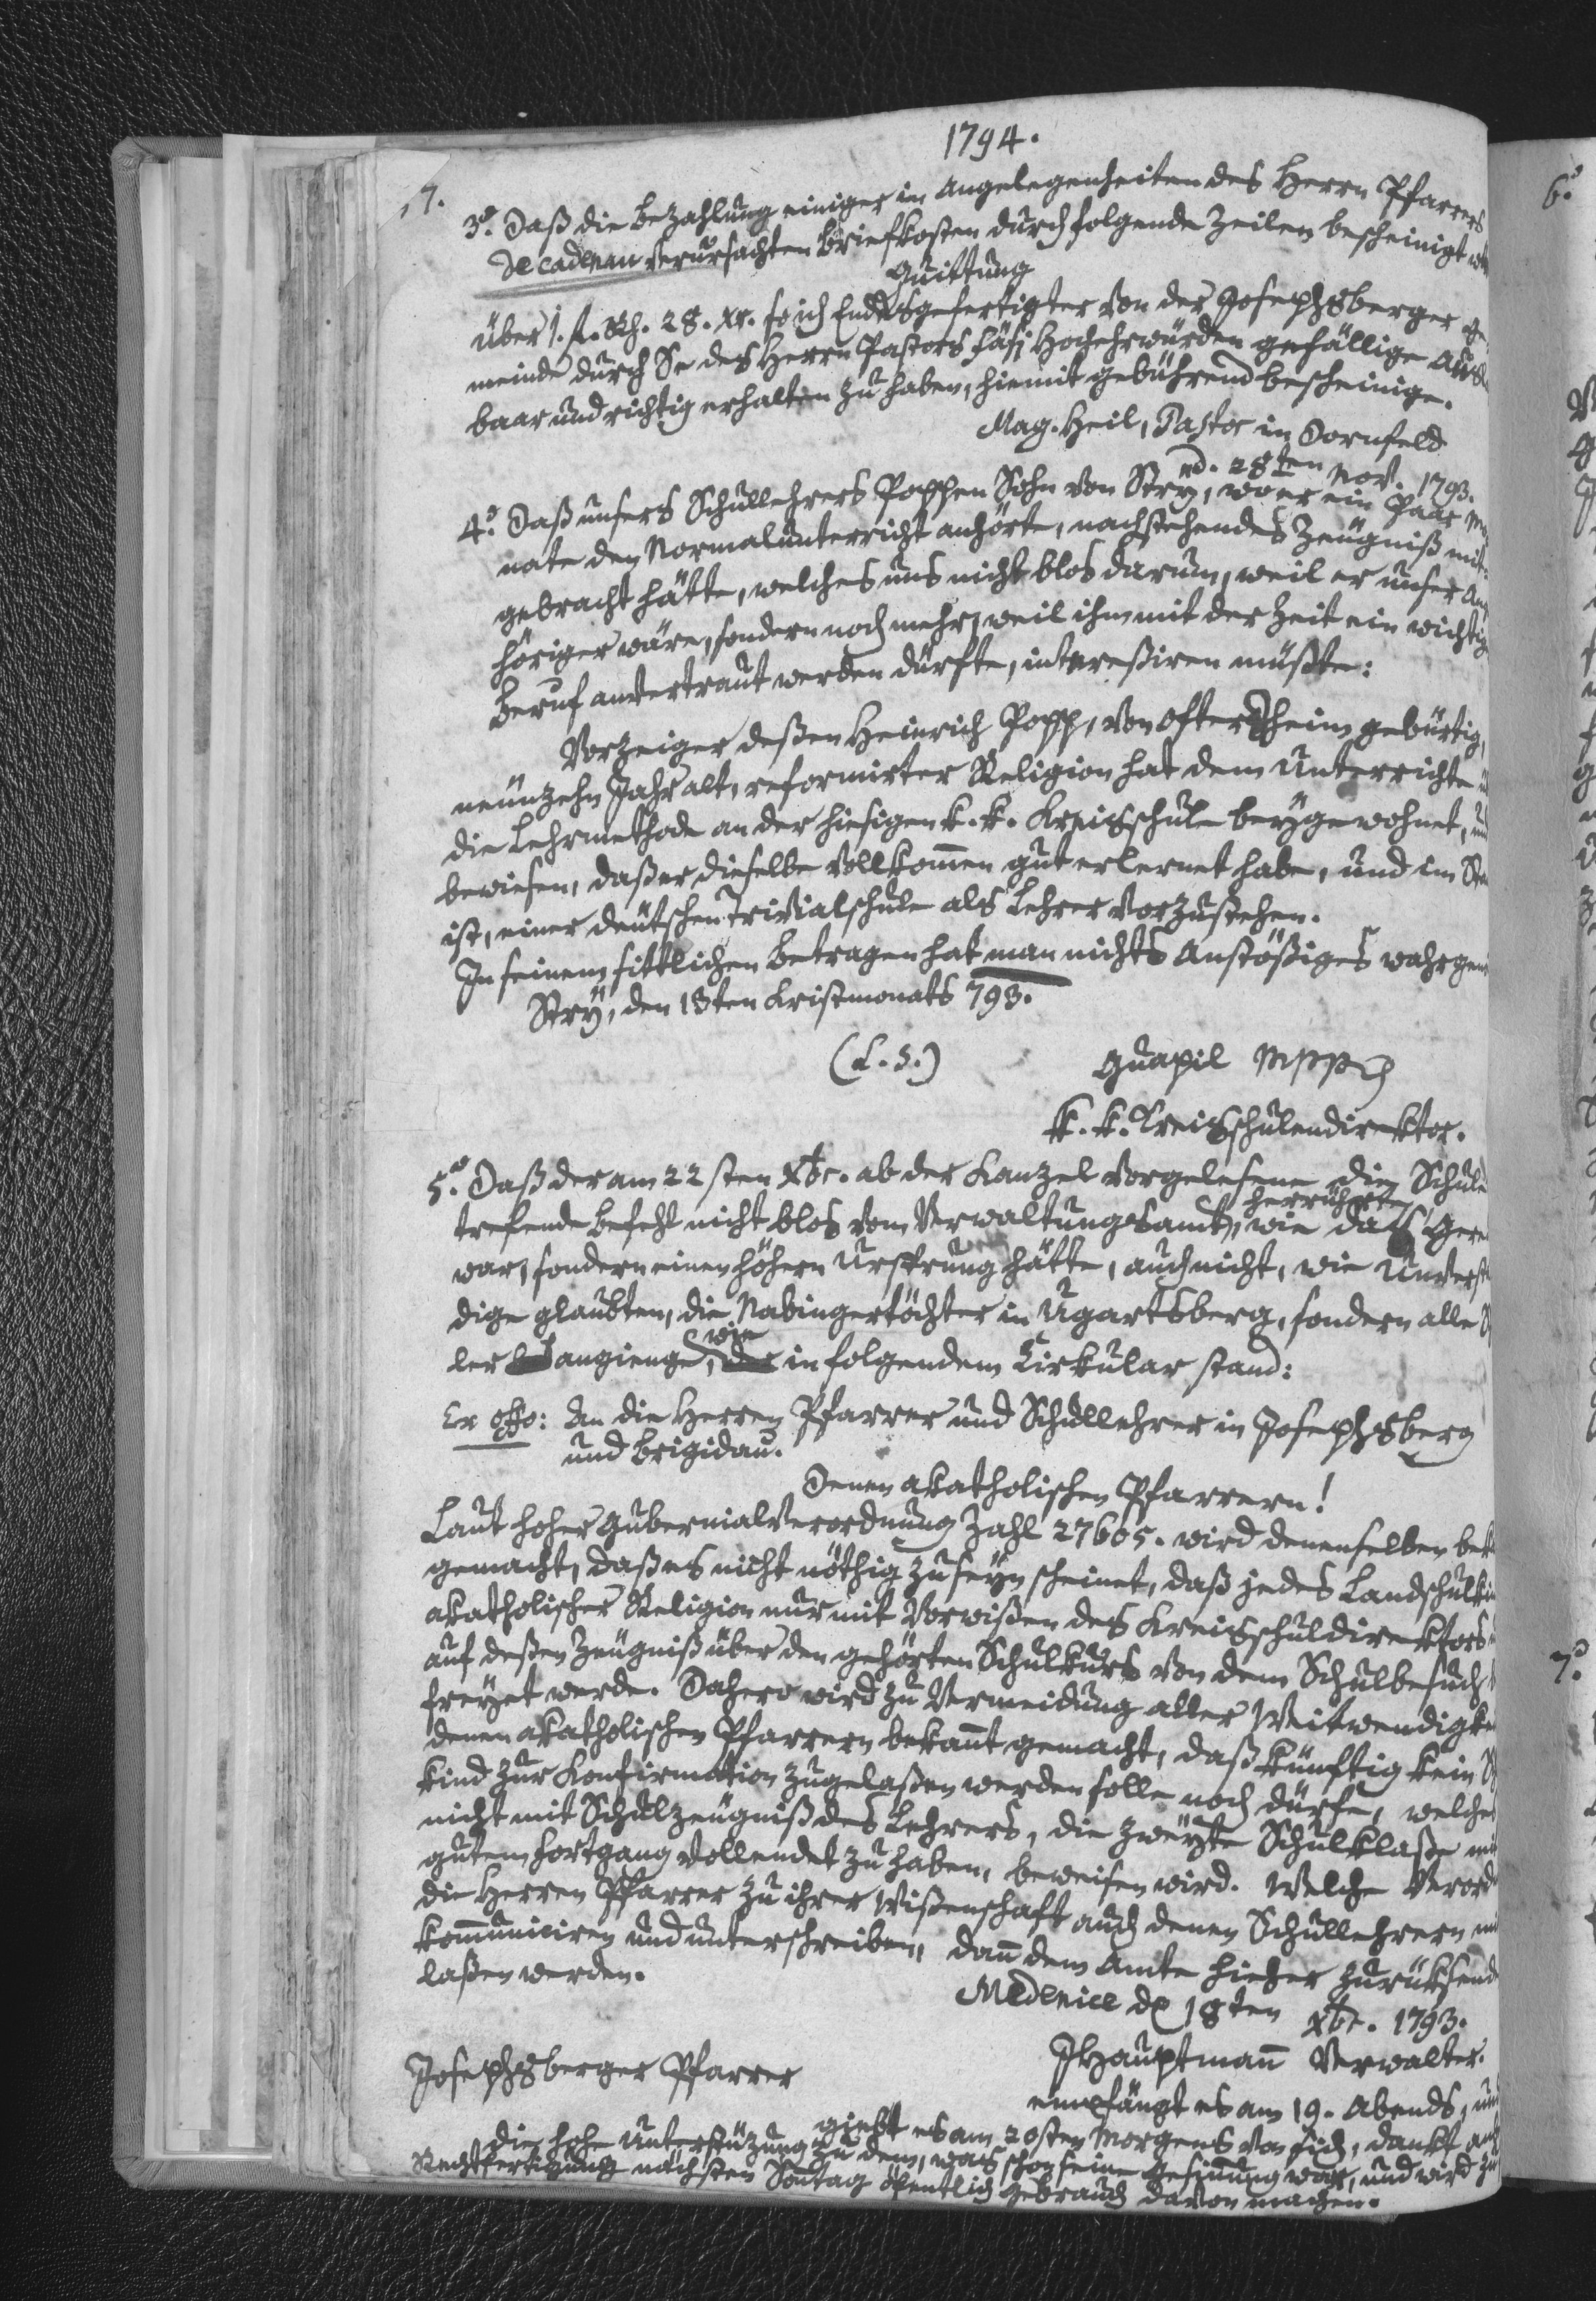 1794.
17.
3o. Daß die Bezahlung einiger in Angelegenheiten des Herrn Pfarrers
Decadenau verursachten Briefkosten durch folgende Zeilen bescheinigt
Quittung
über 1. f. Rh. 28. Xr. so ich Endesgefertigter von der Josephsberger Ge-
meinde durch Se des Herrn Pastors Fäsi Hochehrwürden gefällige
baar und richtig erhalten zu haben, hiemit gebührend bescheinige.
Mag. Heil, Pastor in Dornfeld
d. 28ten Nov. 1793.
4o. Daß unsers Schullehrers Poppen Sohn von Stry, wo er ein Paar Mo-
nate den Normalunterricht anhörte, nachstehendes Zeugniß mit-
gebracht hätte, welches uns nicht blos darum, weil er unser An-
höriger wäre, sondern noch mehr, weil ihm mit der Zeit ein wichtig
Beruf anvertraut werden dürfte, intereßiren müßte:
Vorzeiger deßen Heinrich Popp, von Oftersheim gebürtig,
neunzehn Jahr alt, reformirter Religion hat dem Unterrichte
die Lehrmethode an der hiesigen k. k. Kreisschule beygewohnet, und
bewiesen, daß er dieselbe vollkommen gut erlernet habe, und im
ist, einer deutschen Trivialschule als Lehrer vorzustehen.
In seinem sittlichen Betragen hat man nichts Anstößiges
Stry, den 13ten Kristmonats 793.
(L. S.) Quapil mpp
k. k. Kreisschulendirektor.
5o. Daß der am 22sten Xbr. ab der Kanzel vorgelesene die Schule
herrührte
trefende Befehl nicht blos vom Verwaltungsamt, wie das
war, sondern einen höhern Ursprung hätte, auch nicht, wie
dige glaubten, die Nabingertöchter in Ugartsberg, sondern alle
wie
ler angienge, in folgendem Cirkular stand:
Ex offo: An die Herren Pfarrer und Schullehrer in Josephsberg
und Brigidau.
Denen akatholischen Pfarrern!
Laut hoher Gubernialverordnung Zahl 27605. wird denenselben
gemacht, daß es nicht nöthig zu seyn scheinet, daß jedes
akatholischer Religion nur mit Vorwißen des Kreisschuldirektors
auf deßen Zeugniß über den gehörten Schulkurs von dem Schulbesuch
freyet werde. Dahero wird zu Vermeidung aller
denen akatholischen Pfarrern bekannt gemacht, daß künftig kein
kind zur Konfirmation zugelaßen werden solle noch dürfe, welches
nicht mit Schulzeugniß des Lehrers, die zweyte Schulklaße mit
gutem Fortgang vollendet zu haben, beweisen wird. Welche
die Herren Pfarrer zu ihrer Wißenschaft auch denen Schullehrern
kommuniciren und unterschreiben, dann dem Amte hieher
laßen werden.
Medenice d 18ten Xbr. 1793.
JHauptmann Verwalter.
Josephsberger Pfarrer
empfängt es am 19. Abends, und
giebt es am 20sten Morgens von sich, dankt
die hohe Unterstüzung zu dem, was schon seine Gesinnung war, und wird zu
Rechtfertigung nächsten Sontag öfentlich Gebrauch davon machen.
6o.
7o.